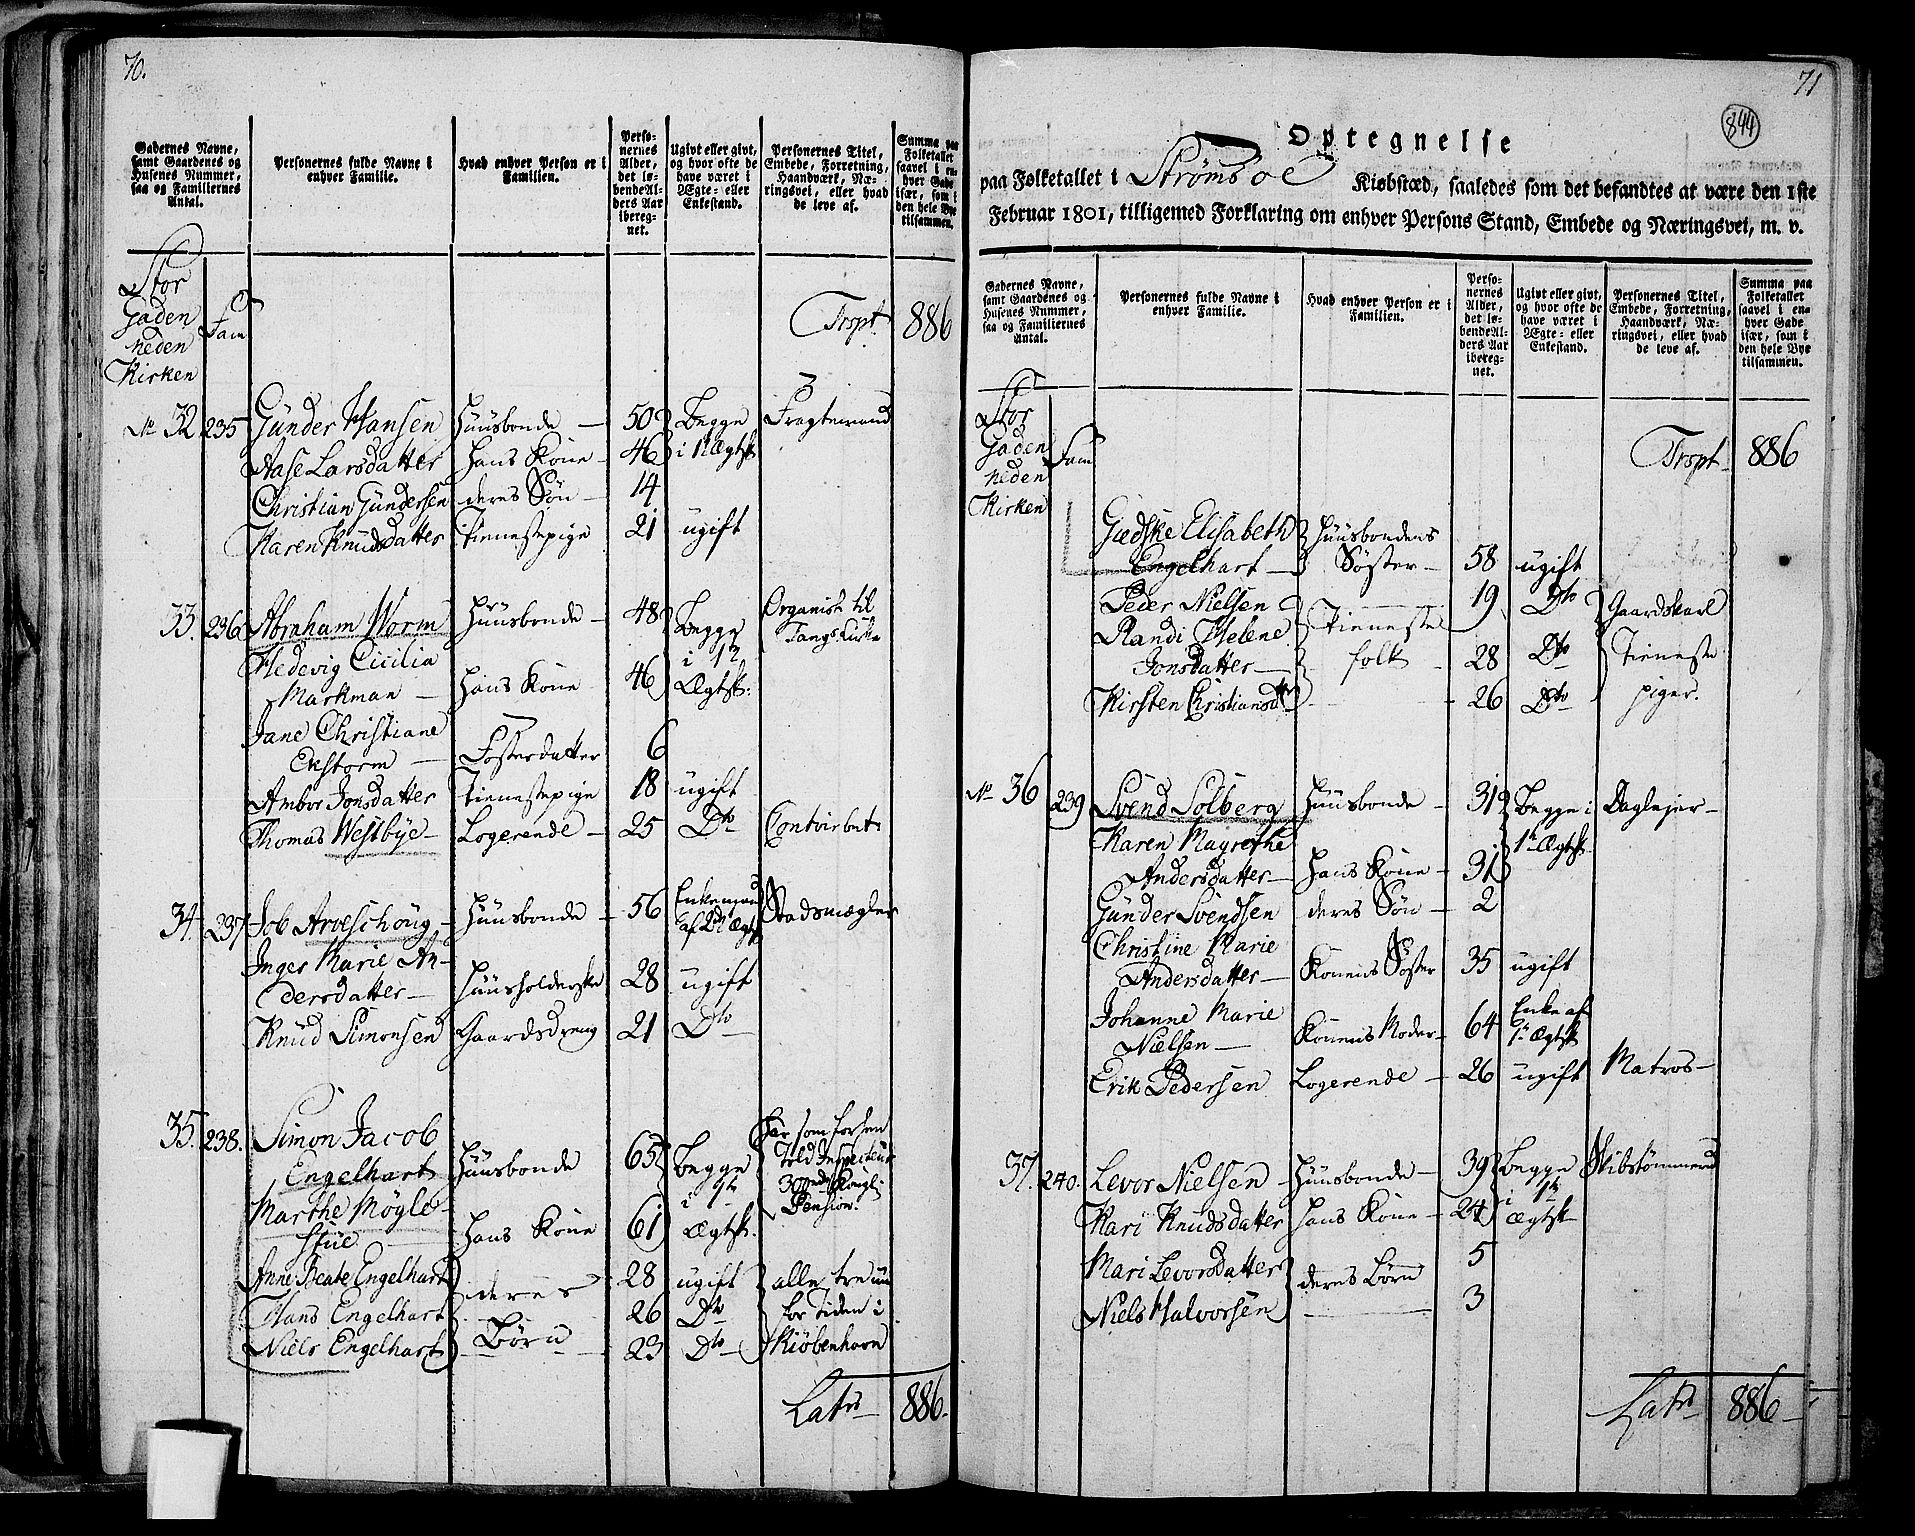 70.
Gadernes Navne, samt Gaardenes og Husenes Nummer, saa og Familiernes Antal.
Personernes fulde Navne i enhver Familie.
Hvad enhver Person er i Familien.
Personernes Alder, det løbende Alders Aar iberegnet.
Ugivt eller givt, og hvor ofte de have været i Ægte- eller Enkestand.
Personernes Titel, Embede, Forretning, Haandværk, Næringsvei, eller hvad de leve af.
Summa paa Folketallet saavel i enhver Gade især, som i den hele Bye tilsammen.
Stor
Gaden
neden Fam
Kirken
Trspt 886
No 32 235 Gunder Hansen Huusbonde 50 Begge Fragtemand
Aase Larsdatter hans Kone 46 i 1 Ægtsk
Christian Gundersen deres Søn 14
Karen Knudsdatter Tienestepige 21 ugift
33. 236 Abraham Worm Huusbonde 48 Begge Organist til
Tangs. Kirke
Hedevig Cicilia i 1te
Markman hans Kone 46 Ægtsk:
Jane Christiane
Ekstorm Fosterdatter 6
Ambor Jonsdatter Tienestepige 18 ugift
Thomas Westbye Logerende 25 Do Contoirbet:
34. 237 Job Arveschoug Huusbonde 56 Enkemand Stadsmægler
af 2det Ægts
Inger Marie An-
dersdatter Huusholderske 28 ugift
Knud Simonsen Gaardsdreng 21 Do
35. 238. Simon Jacob har som forhen
Engelhart Huusbonde 65 Begge Told Inspecteur
300 rd Kongl:
Marthe Møgle- i 1te Pension.
stue hans Kone 61 Ægtsk.
Anne Beate Engelhart deres 28 ugift alle tre nu
Hans Engelhart 26 Do for Tiden i
Niels Engelhart Børn 23 Do Kiøbenhavn
Latrs 886.
71
844
Optegnelse
paa Folketallet i Strømsoe Kiøbstæd, saaledes som det befandtes at være den 1ste
Februar 1801, tilligemed Forklaring om enhver Persons Stand, Embede og Næringsvei, m. v.
Gadernes Navne, samt Gaardenes og Husenes Nummer, saa og Familiernes Antal.
Personernes fulde Navne i enhver Familie.
Hvad enhver Person er i Familien.
Personernes Alder, det løbende Alders Aar iberegnet.
Ugivt eller givt, og hvor ofte de have været i Ægte- eller Enkestand.
Personernes Titel, Embede, Forretning, Haandværk, Næringsvei, eller hvad de leve af.
Summa paa Folketallet saavel i enhver Gade især, som i den hele Bye tilsammen.
Stor
Gaden Fam
neden
Kirken
Trspt 886
Giedske Elisabeth Huusbondens
Engelhart Søster 58 ugift
Peder Nielsen Tieneste 19 Do Gaardskarl
Randi Helene
Jonsdatter folk 28 Do Tieneste
Kirsten Christiansdtr 26 Do piger.
No 36 239 Svend Solberg Huusbonde 31 Begge i Daglejer
Karen Magrethe 1te Ægtsk
Andersdatter hans Kone 31
Gunder Svendsen deres Søn 2
Christine Marie
Andersdatter Konens Søster 35 ugift
Johanne Marie Enke af
Nielsen Konens Moder 64 1te Ægtsk
Erik Pedersen Logerende 26 ugift Matros
37. 240. Levor Nielsen Huusbonde 39 Begge Skibstømmermd
Kari Knudsdatter hans Kone 24 i 1te Ægtsk
Mari Levorsdatter deres Børn 5
Niels Halvorsen 3
Latrs 886